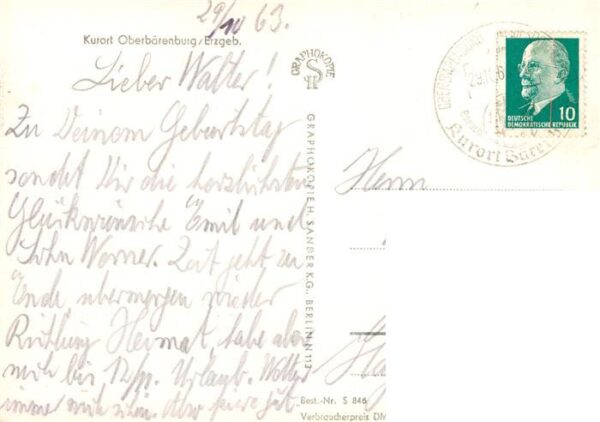 29/10 63.
Kurort Oberbärenburg/Erzgeb.
Lieber Walter!
Zu Deinem Geburtstag
sendet Dir die herzlichsten
Glückwünsche Emil und
Sohn Werner. Zeit geht zu
Ende, übermorgen wieder
Richtung Heimat, habe aber
noch bis 12/11. Urlaub. Wetter
immer noch schön.
GRAPHOKOPIE
GRAPHOKOPIE H. SANDER K.G., BERLIN N 113
Herrn
Best.-Nr. S 846
Verbraucherpreis DM
29.10.63
Kurort
DEUTSCHE
DEMOKRATISCHE REPUBLIK
10